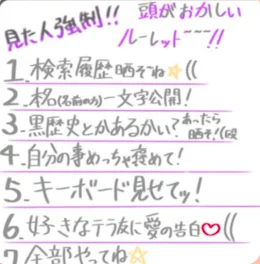 見た人強制!!
頭がおかしい
ルーレット~~~!!
1.検索履歴晒そね☆((
2.本名(名前のみ)一文字公開!
3.黒歴史とかあるかい?あったら晒そ!(殴
4.自分の事めっちゃ褒めて!
5.キーボード見せてッ!
6.好きなテラ友に愛の告白♡((
7全部やってね☆